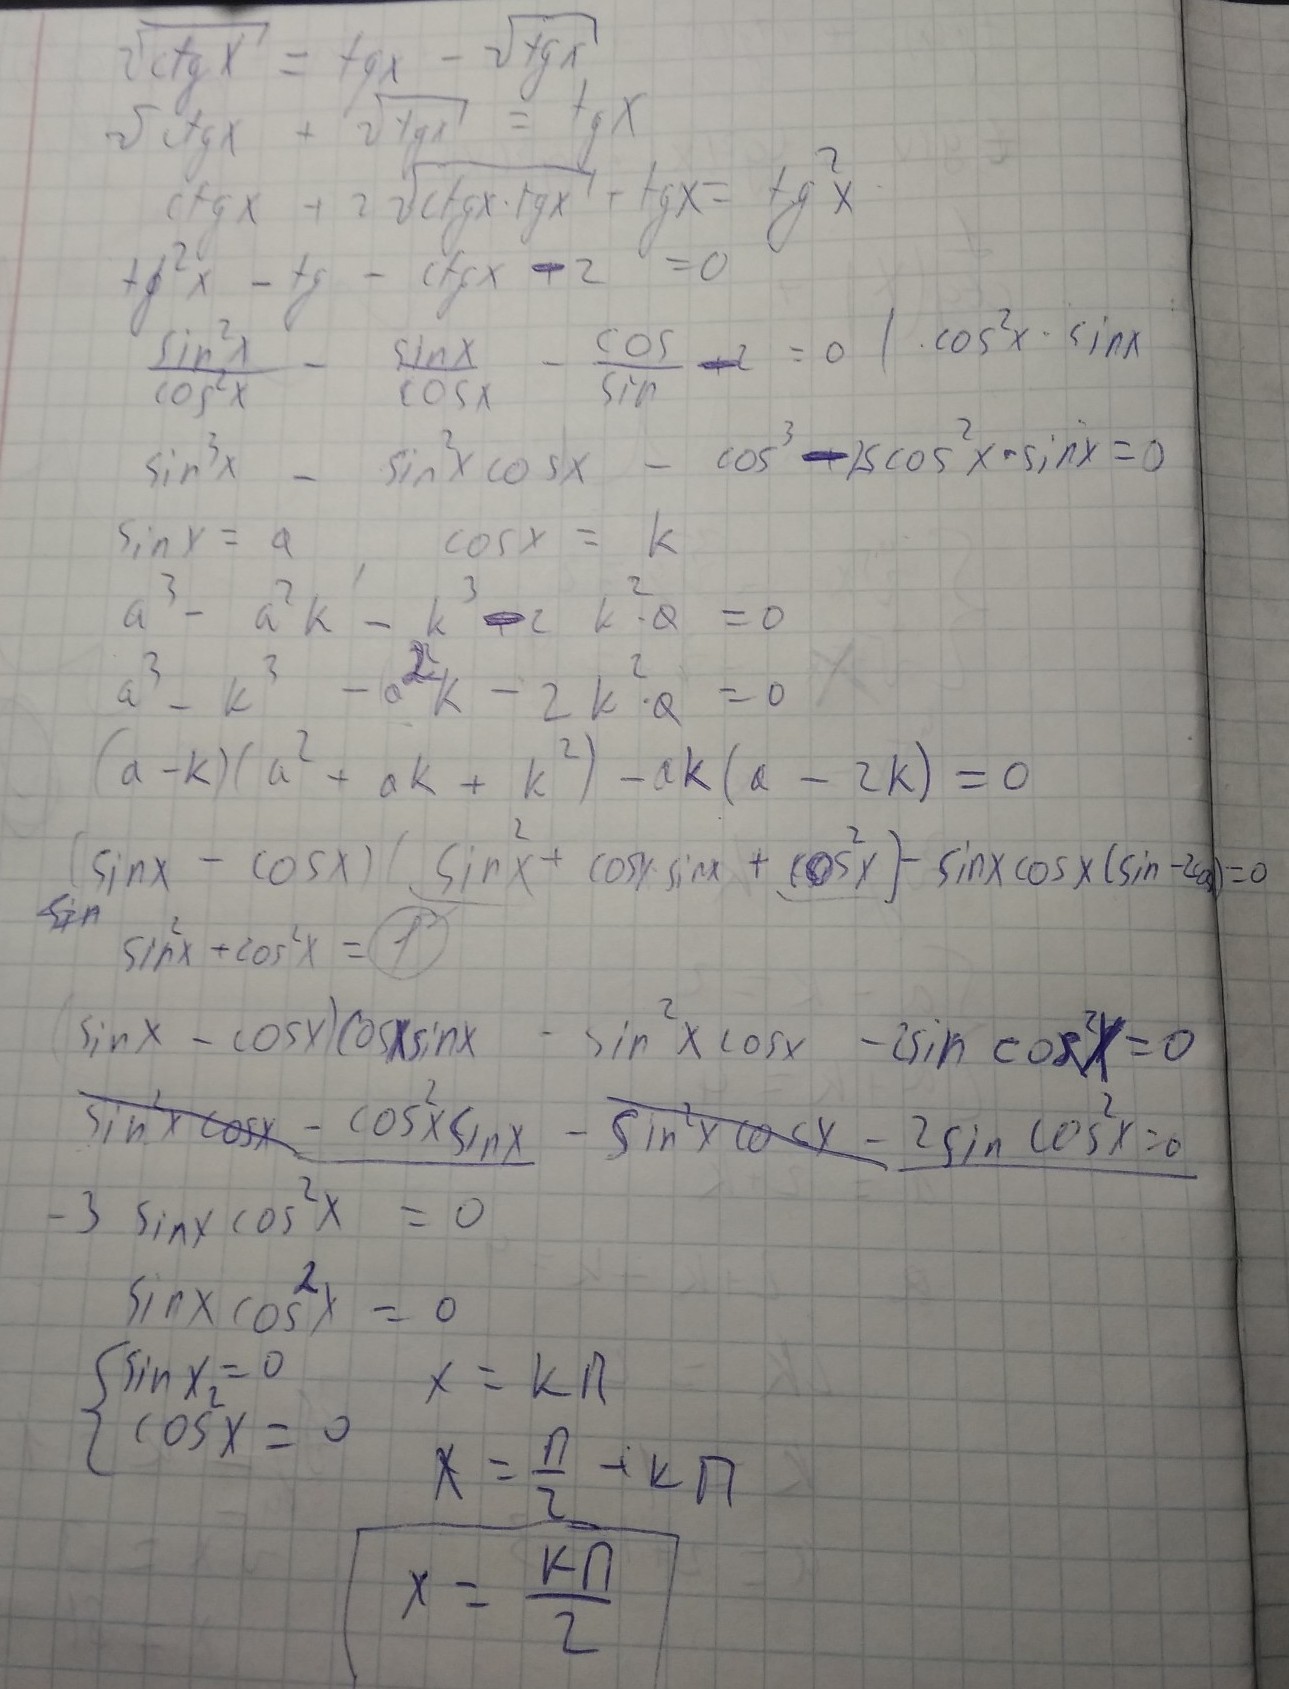 √ctgx = tgx - √tgx
√ctgx + √tgx = tgx
ctgx + 2√ctgx·tgx + tgx = tg²x
tg²x - tg - ctgx - 2 = 0
sin²x/cos²x - sinx/cosx - cos/sin - 2 = 0 | ·cos²x·sinx
sin³x - sin²x cosx - cos³ - 2 cos²x·sinx = 0
sinx = a, cosx = k
a³ - a²k - k³ - 2 k²·a = 0
a³ - k³ - a²k - 2k²·a = 0
(a-k)(a² + ak + k²) - ak(a - 2k) = 0
(sinx - cosx)(sin²x + cosx·sinx + cos²x) - sinxcosx(sin-2cos)=0
sin
sin²x + cos²x = 1
(sinx - cosx)cosxsinx - sin²x cosx - 2sin cos²x = 0
sin²x cosx - cos²x sinx - sin²x cosx - 2sin cos²x = 0
-3 sinx cos²x = 0
sinx cos²x = 0
{ sinx = 0 x = kп
cos²x = 0
x = п/2 + kп
x = kп/2